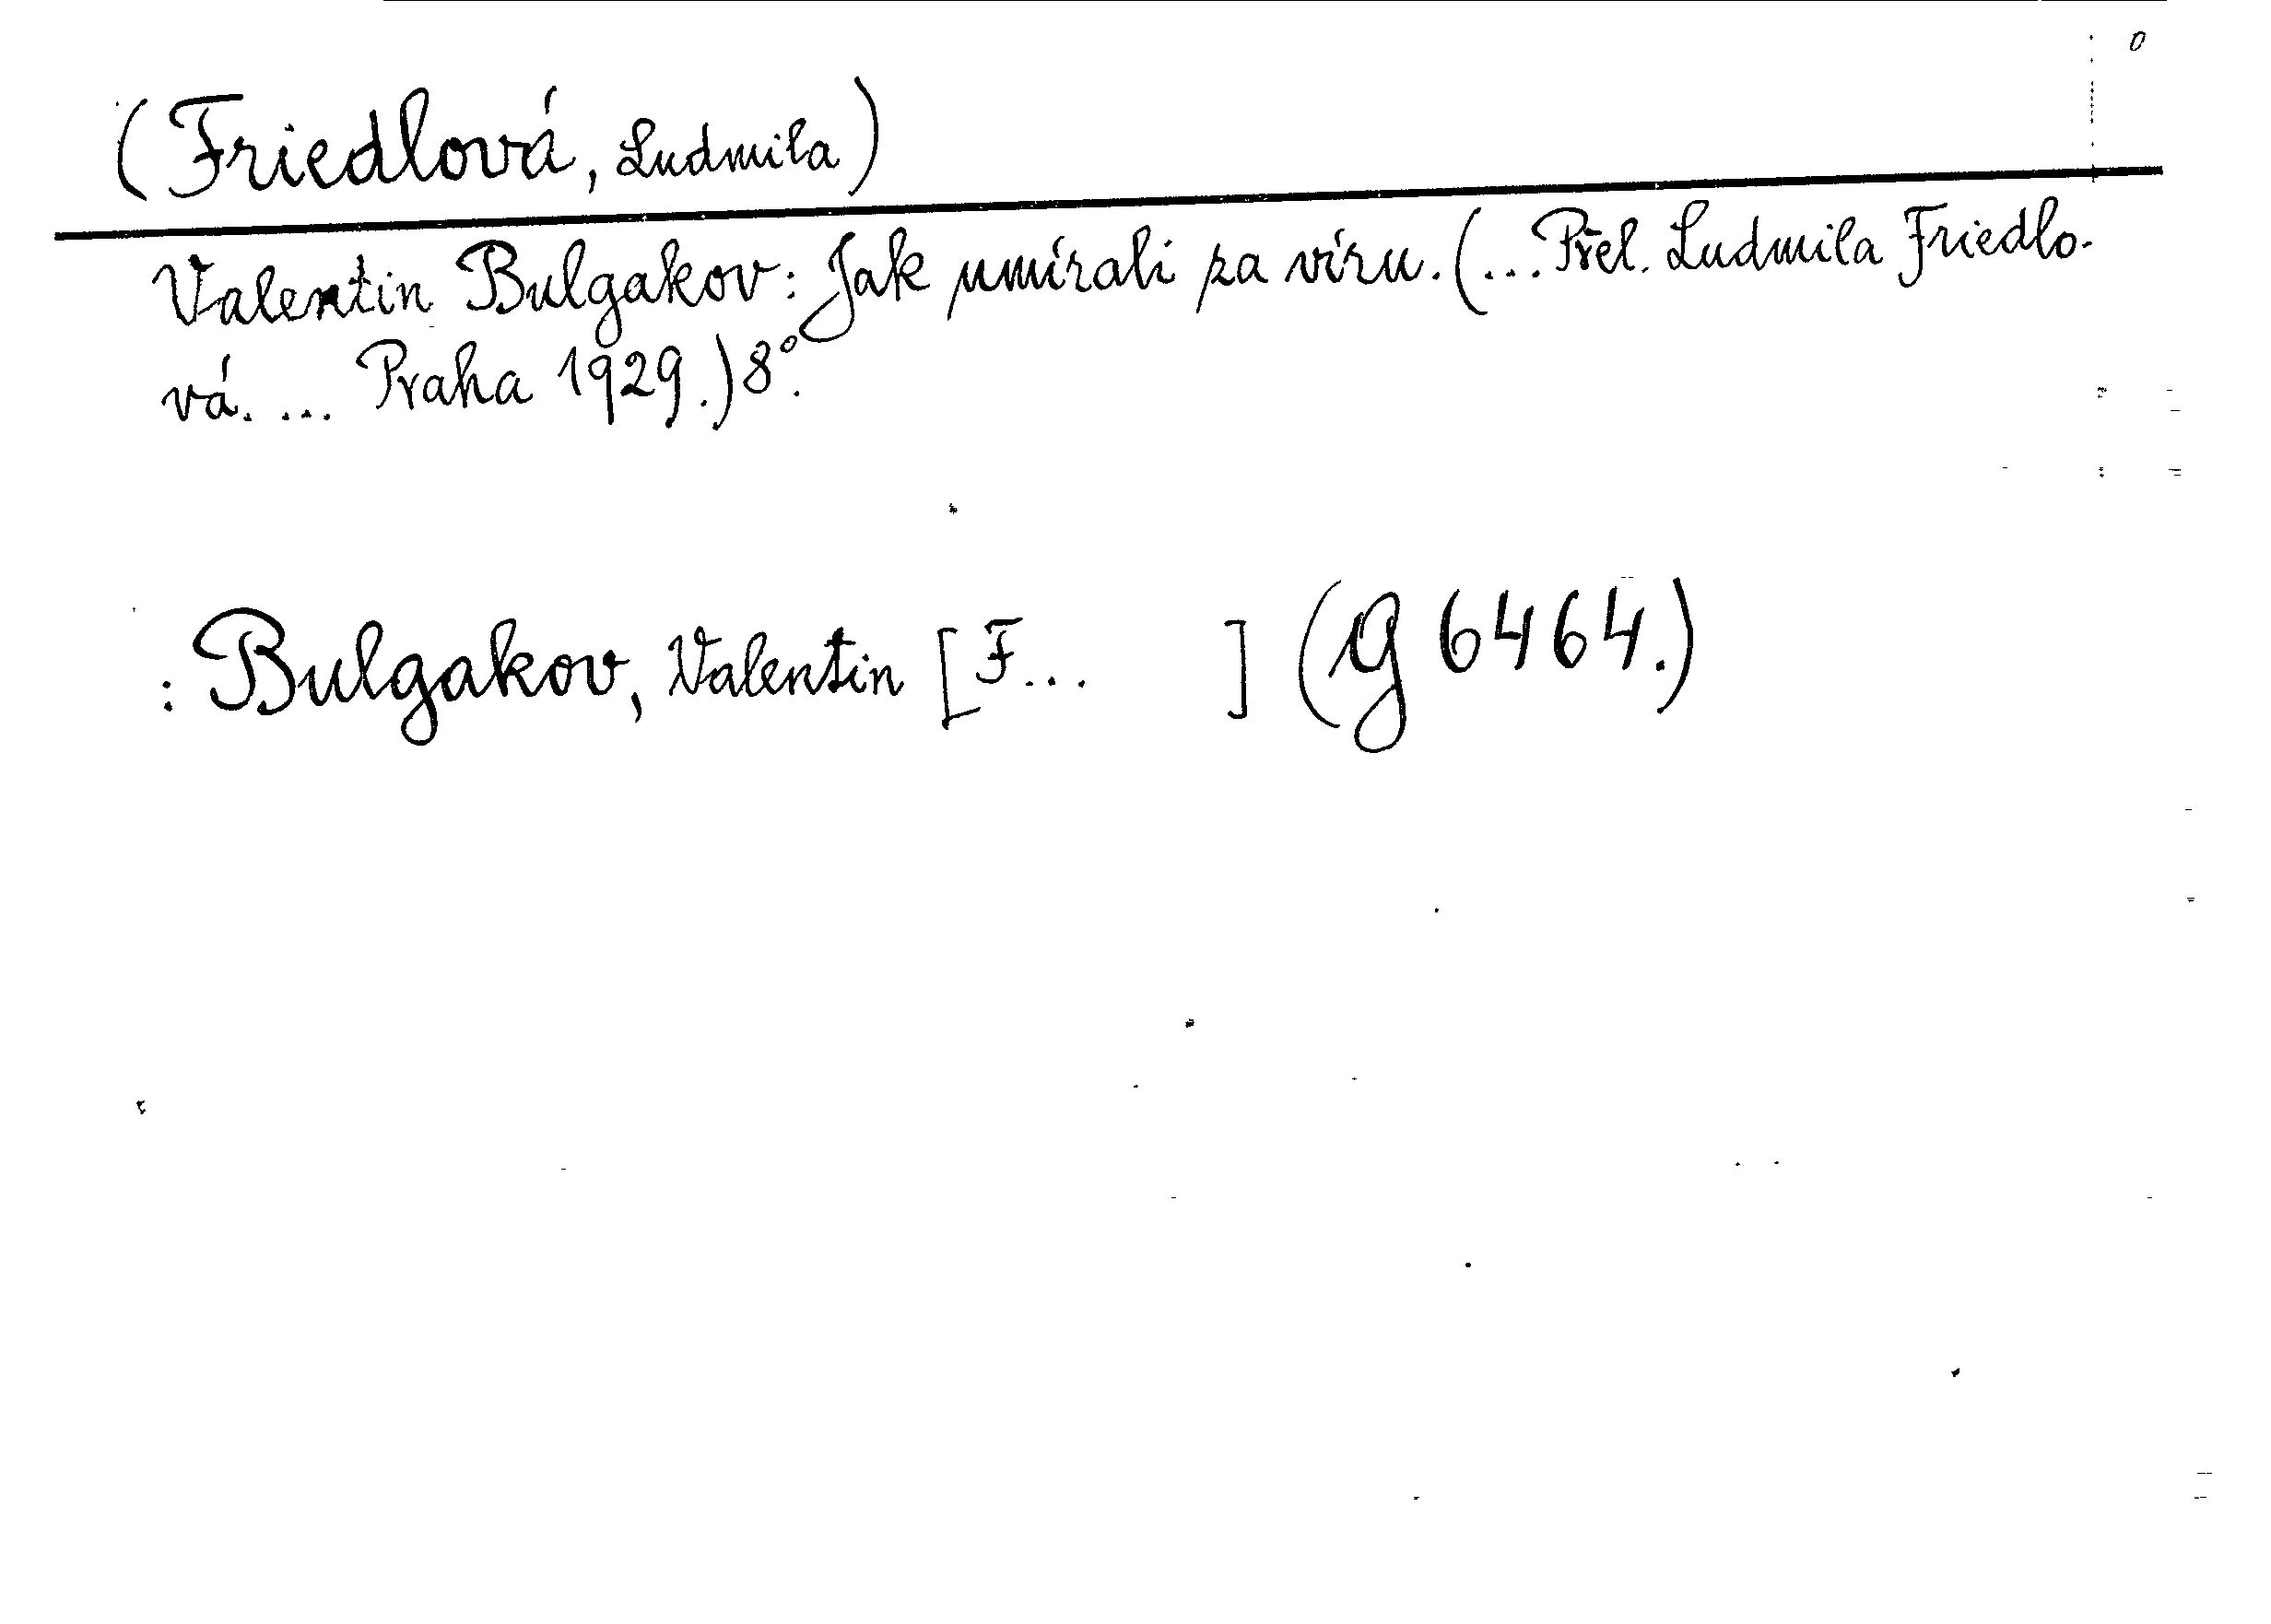 0
(Friedlová, Ludmila)
Valentin Bulgakov: Jak umírali za víru. (... Přel. Ludmila Friedlo-
vá. ... Praha 1929.) 8°.
: Bulgakov, Valentin [F... ] (g 6464.)